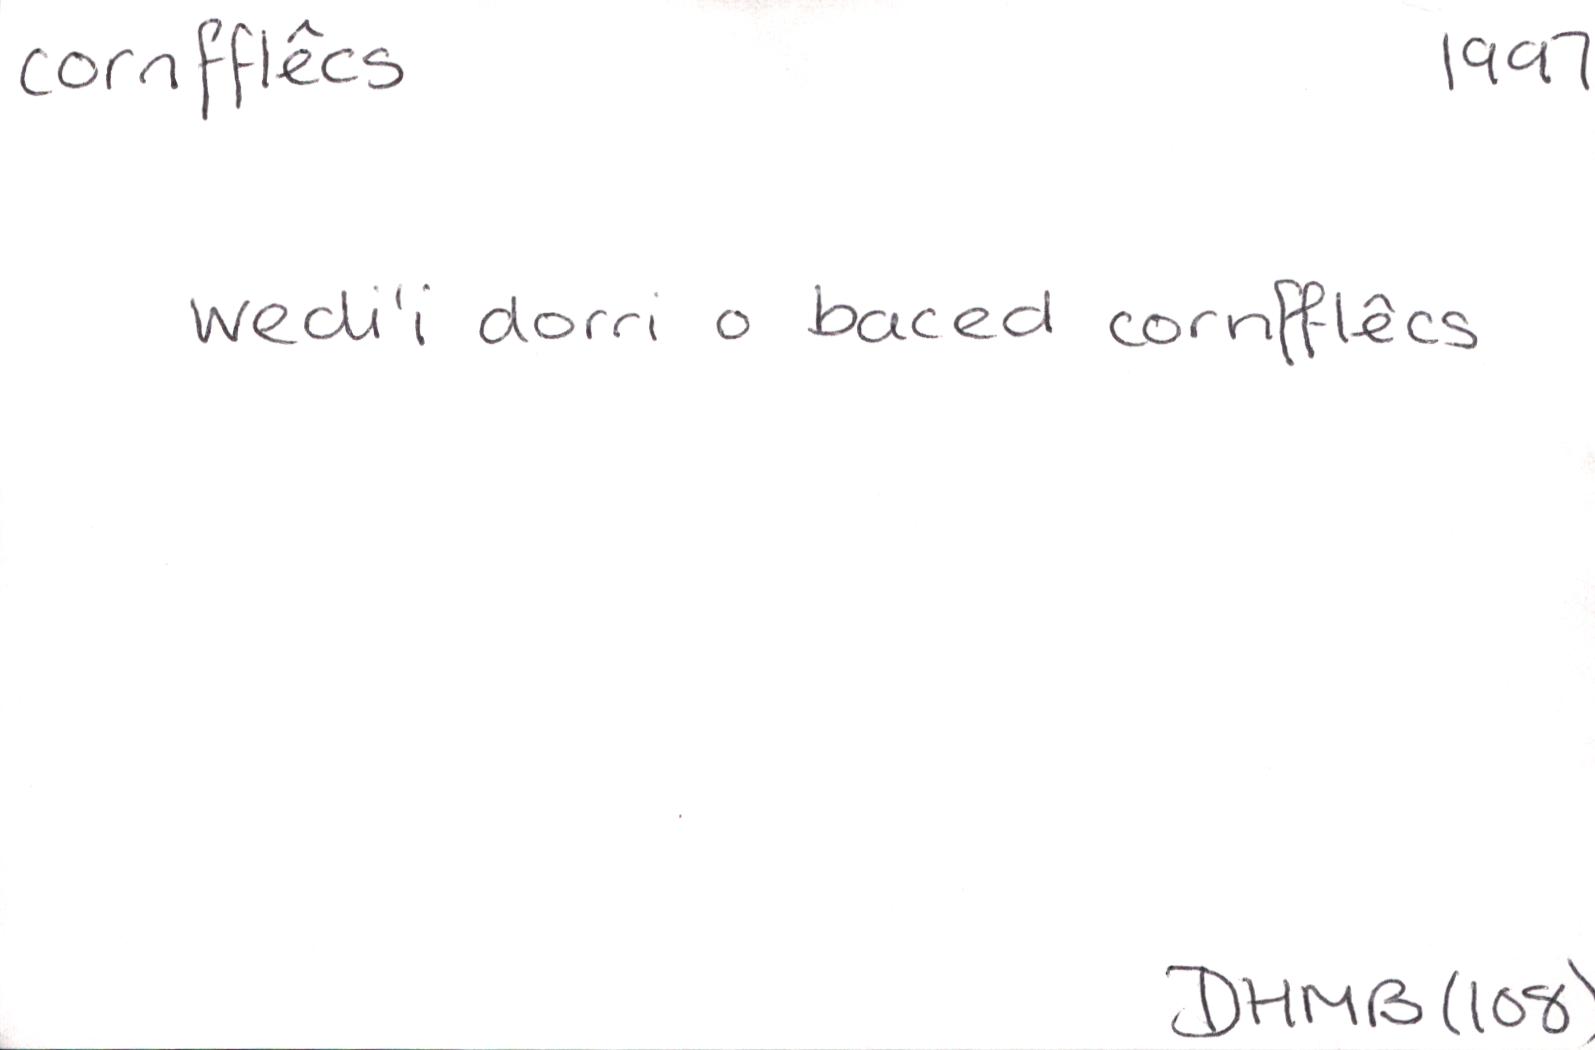 cornfflêcs 1997
wedi'i dorri o baced cornfflêcs
DHMB (108)